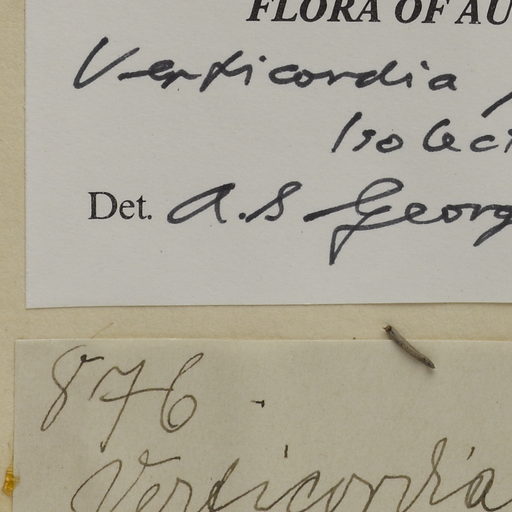 FLORA OF AU
Verticordia
Isolect
Det. A.S George
876.
Verticordia